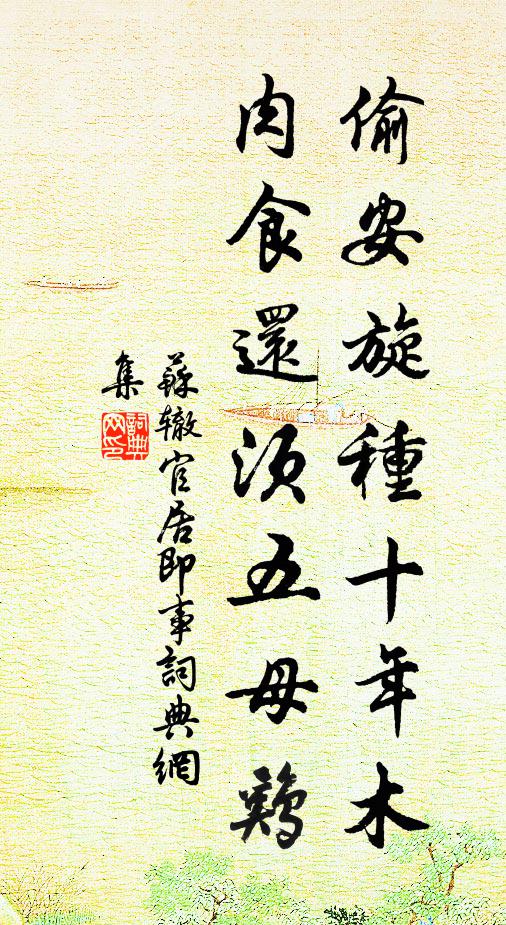 偷安旋種十年木
肉食還須五母鷄
蘇辙官居即事詞典網
集
詞典网印